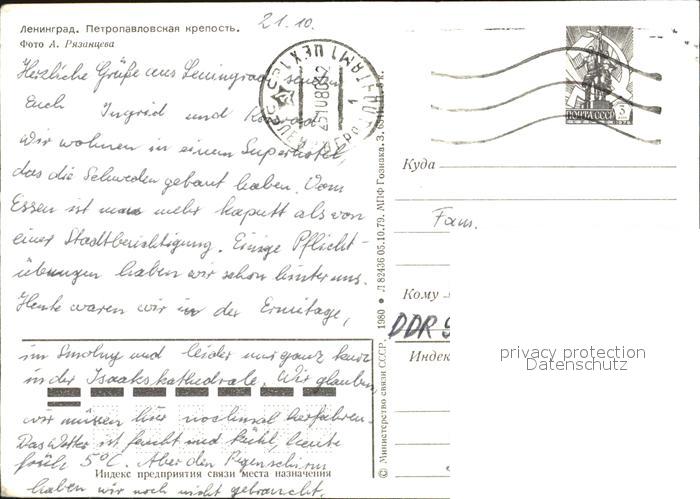 21.10.
Ленинград. Петропавловская крепость.
Фото А. Рязанцева
Herzliche Grüße aus Leningrad senden
Euch Ingrid und Konrad
Wir wohnen in einem Superhotel,
das die Schweden gebaut haben. Vom
Essen ist man mehr kaputt als von
einer Stadtbesichtigung. Einige Pflicht-
übungen haben wir schon hinter uns.
Heute waren wir in der Ermitage,
im Smolny und leider nur ganz kurz
in der Isaakskathedrale. Wir glauben,
wir müssen hier nochmal herfahren.
Das Wetter ist feucht und kühl, heute
früh 5°C. Aber den Regenschirm
haben wir noch nicht gebraucht.
Индекс предприятия связи места назначения
© Министерство связи СССР, 1980 • Л 82436 05.10.79. МПФ Гознака. З.
251080
ПОЧТА СССР
5
1976
Куда
Fam.
Кому
DDR
Индек
privacy protection
Datenschutz